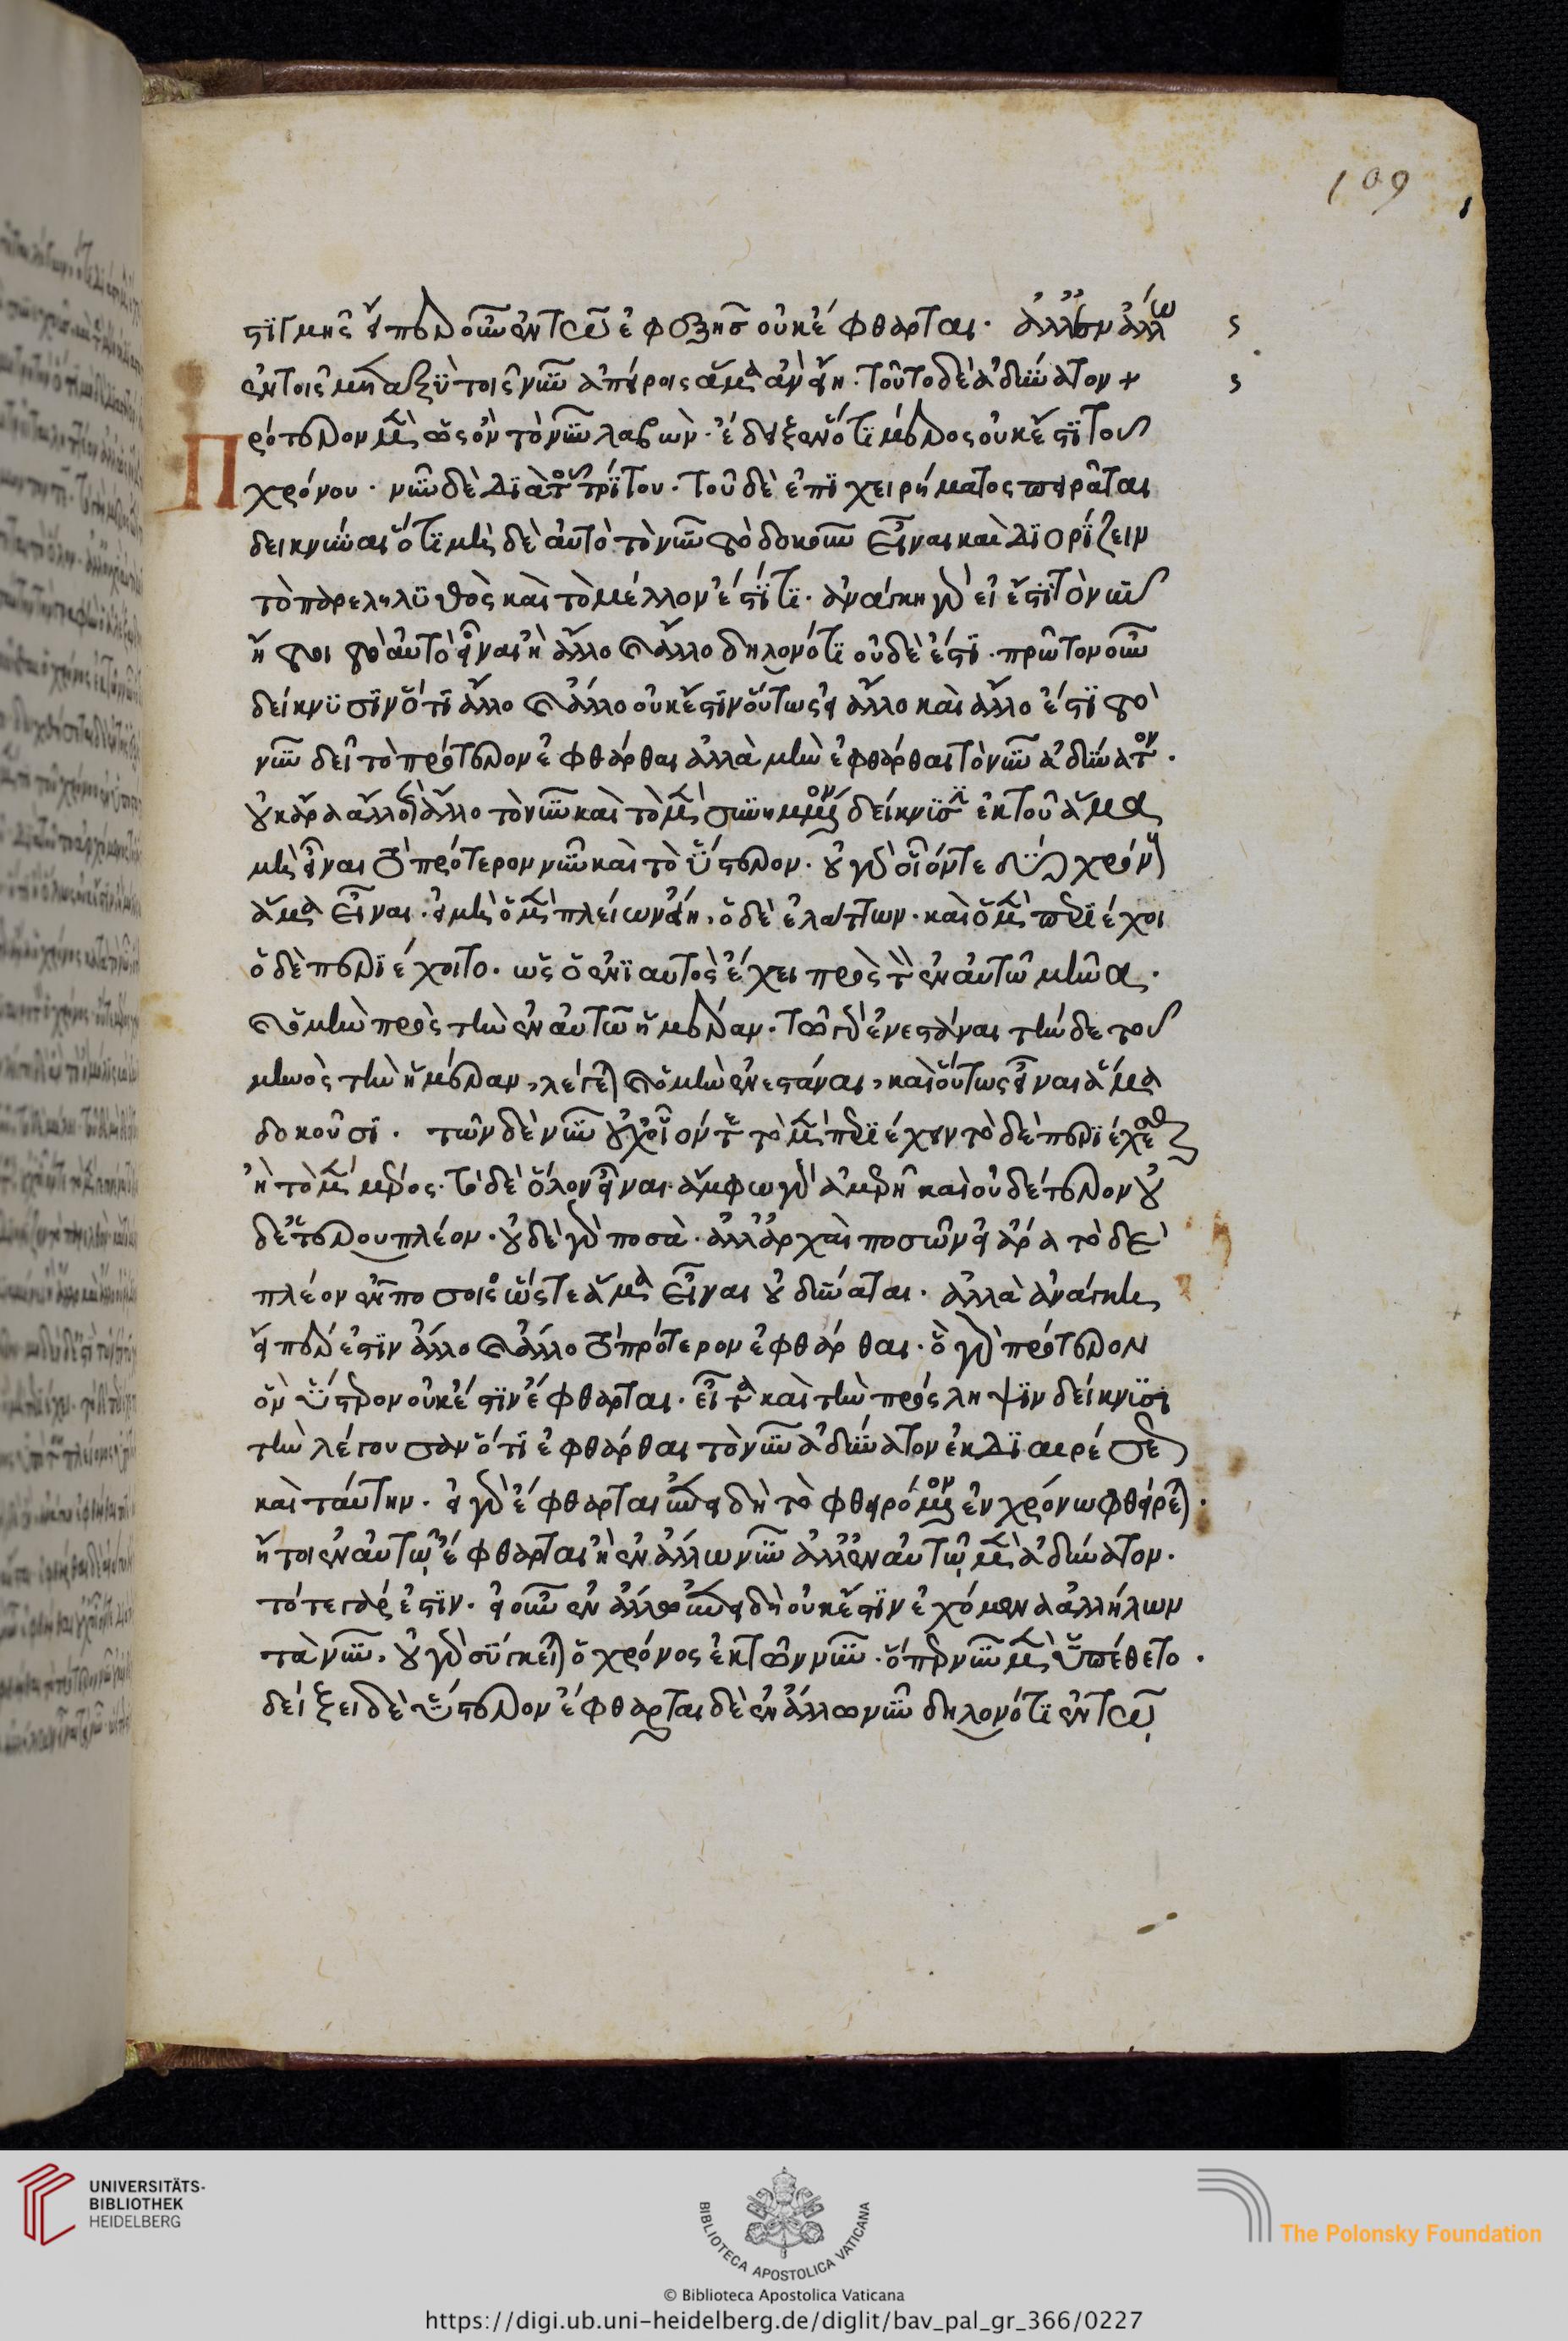 στιγμῆς εἴπερ οὖν ἐν τῷ ἐφεξῆς οὐκ ἔφθαρται· ἀλλ' ἐν ἄλλω
ἐν τοῖς μεταξὺ τοῖς νῦν ἀπείροις ἅμα ἂν εἴη· τοῦτο δὲ ἀδύνατον +
Πρότερον μὲν ὡς ὂν τὸ νῦν λαβὼν· ἔδειξεν ὅτι μέρος οὐκ ἔστι τοῦ
χρόνου· νῦν δὲ διὰ τοῦ τρίτου· τοῦδε ἐπιχειρήματος πειρᾶται
δεικνύναι ὅτι μὴ δὲ αὐτὸ τὸ νῦν τὸ δοκοῦν εἶναι καὶ διορίζειν
τὸ παρεληλυθὸς καὶ τὸ μέλλον ἔστί τι· ἀνάγκη γὰρ εἰ ἔστι τὸ νῦν
ἤτοι τὸ αὐτὸ εἶναι ἢ ἄλλο καὶ ἄλλο δηλονότι οὐδὲ ἔστι· πρῶτον οὖν
δείκνυσιν ὅτι ἄλλο καὶ ἄλλο οὐκ ἔστιν οὕτως εἰ ἄλλο καὶ ἄλλο ἐστὶ τὸ
νῦν δεῖ τὸ πρότερον ἐφθάρθαι ἀλλὰ μὴν ἐφθάρθαι τὸ νῦν ἀδύνατον·
οὐκ ἄρα ἄλλο καὶ ἄλλο τὸ νῦν καὶ τὸ μὲν συνημμένον δείκνυσιν ἐκ τοῦ ἅμα
μὴ εἶναι τὸ πρότερον νῦν καὶ τὸ ὕστερον· οὐ γὰρ οἷόν τε δύο χρόνους
ἅμα εἶναι· εἰ μὴ ὁ μὲν πλείων εἴη· ὁ δὲ ἐλάττων· καὶ ὁ μὲν περιέχοι
ὁ δὲ περιέχοιτο· ὡς ὁ ἐνιαυτὸς ἔχει πρὸς τὸν ἐν αὐτῶ μῆνα·
καὶ ὁ μὴν πρὸς τὴν ἐν αὐτῶ ἡμέραν· τῶ γὰρ ἐνεστάναι τήνδε τοῦ
μηνὸς τὴν ἡμέραν, λέγεται καὶ ὁ μὴν ἐνεστάναι, καὶ οὕτως εἶναι ἅμα
δοκοῦσι· τῶν δὲ νῦν οὐχ οἷόν τε τὸ μὲν περιέχειν τὸ δὲ περιέχεσθαι
ἢ τὸ μὲν μέρος· τὸ δὲ ὅλον εἶναι· ἄμφω γὰρ ἀμερῆ καὶ οὐδέτερον οὐ
δετέρου πλέον· οὐδὲ γὰρ ποσὰ· ἀλλ' ἀρχαὶ ποσῶν εἰ ἄρα τὸ δὲ
πλέον ἐν ποσοῖς ὥστε ἅμα εἶναι οὐ δύναται· ἀλλὰ ἀνάγκη
εἴπερ ἐστὶν ἄλλο καὶ ἄλλο τὸ πρότερον ἐφθάρθαι· ὃ γὰρ πρότερον
ὂν ὕστερον οὐκ ἔστιν ἔφθαρται· εἶτα καὶ τὴν πρόσληψιν δείκνυσι
τὴν λέγουσαν ὅτι ἐφθάρθαι τὸ νῦν ἀδύνατον ἐκ διαιρέσεως
καὶ ταύτην· εἰ γὰρ ἔφθαρται ἐπειδὴ τὸ φθειρόμενον ἐν χρόνω φθείρεται·
ἤτοι ἐν αὐτῷ ἔφθαρται ἢ ἐν ἄλλω νῦν ἀλλ' ἐν αὐτῷ μὲν ἀδύνατον·
τότε γάρ ἐστιν· εἰ οὖν ἐν ἄλλω ἐπειδὴ οὐκ ἔστιν ἐχόμενα ἀλλήλων
τὰ νῦν, οὐ γὰρ σύγκειται ὁ χρόνος ἐκ τῶν νῦν· ὅπερ νῦν μὲν ὑπέθετο·
δείξει δὲ ὕστερον ἔφθαρται δὲ ἐν ἄλλω νῦν δηλονότι ἐν τῷ
109
UNIVERSITÄTS-
BIBLIOTHEK
HEIDELBERG
BIBLIOTECA APOSTOLICA VATICANA
The Polonsky Foundation
© Biblioteca Apostolica Vaticana
https://digi.ub.uni-heidelberg.de/diglit/bav_pal_gr_366/0227